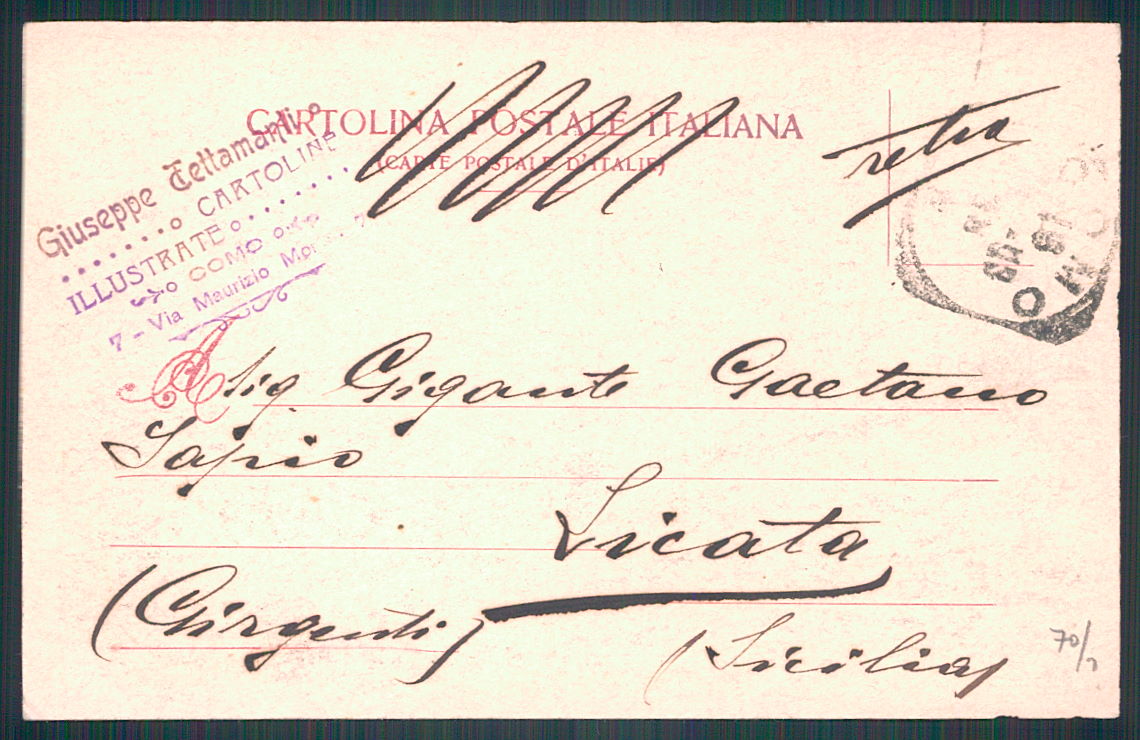 CARTOLINA POSTALE ITALIANA
(CARTE POSTALE D'ITALIE)
retro
Giuseppe Tettamanti
CARTOLINE
ILLUSTRATE
COMO
7 - Via Maurizio
COMO
A sig. Gigante Gaetano
Sapio
Licata
(Girgenti)
(Sicilia)
70/